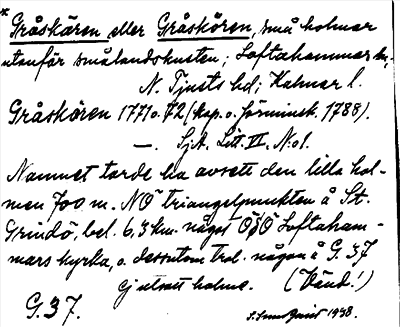 * Gråskären eller Gråskören, små holmar
utanför smålandskusten; Loftahammar sn,
N. Tjusts hd; Kalmar l.
Gråskören 1771 o. 72 (kop. o. förminsk. 1788).
—. Sj.A. Litt. II. N:o 1.
Namnet torde ha avsett den lilla hol-
men 700 m. NÖ triangelpunkten å St.
Grindö, bel. 6,3 km. något ÖSÖ Loftaham-
mars kyrka, o. dessutom trol. någon å G. 37
ej utsatt holme. (Vänd!)
G. 37. 1938.